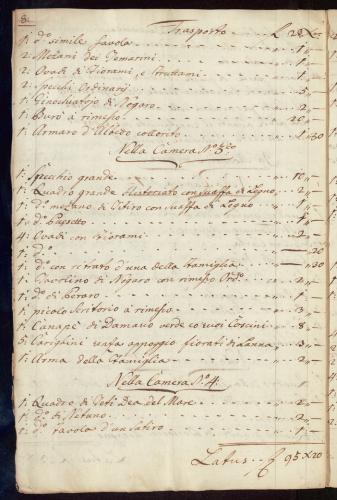 8.
Trasporto L 28 X
1: d.o simile favola 1 —
2: Mezani dei Temarini 1 —
2: Ovadi di Fiorami, e fruttami 1 —
2: specchi Ordinarj 5 —
1: Ginochiatojo di Nogaro 2 —
1: Burò à rimesso 20 —
1: Armaro d'Albeo colorito 1 30
Nella Camera N.o 3.zo
1: Specchio grande 10 —
1: Quadro grande con di Legno 2 —
1: d.o mezano di con di Legno 1 —
1: d.o 1 —
4: Ovadi con Fiorami 2 —
1: d.o — 20
1: d.o con ritrato d'una della Famiglia — 30
1: Tavolino di Nogaro con rimesso Ord.o 2 —
1: d.o di Peraro 1 —
1: picolo Scritorio à rimesso 3 —
1: Canapè di Damasco verde co' suoi Coscini 8 —
5: appoggio fiorati di Lanna 3 —
1: Arma della Famiglia 2 —
Nella Camera N.o 4:
1: Quadro di Teti Dea del Mare 2 —
1: d.o di Netuno 2 —
1: d.o favola d'un Satiro 2 —
Latus L 95 X 20